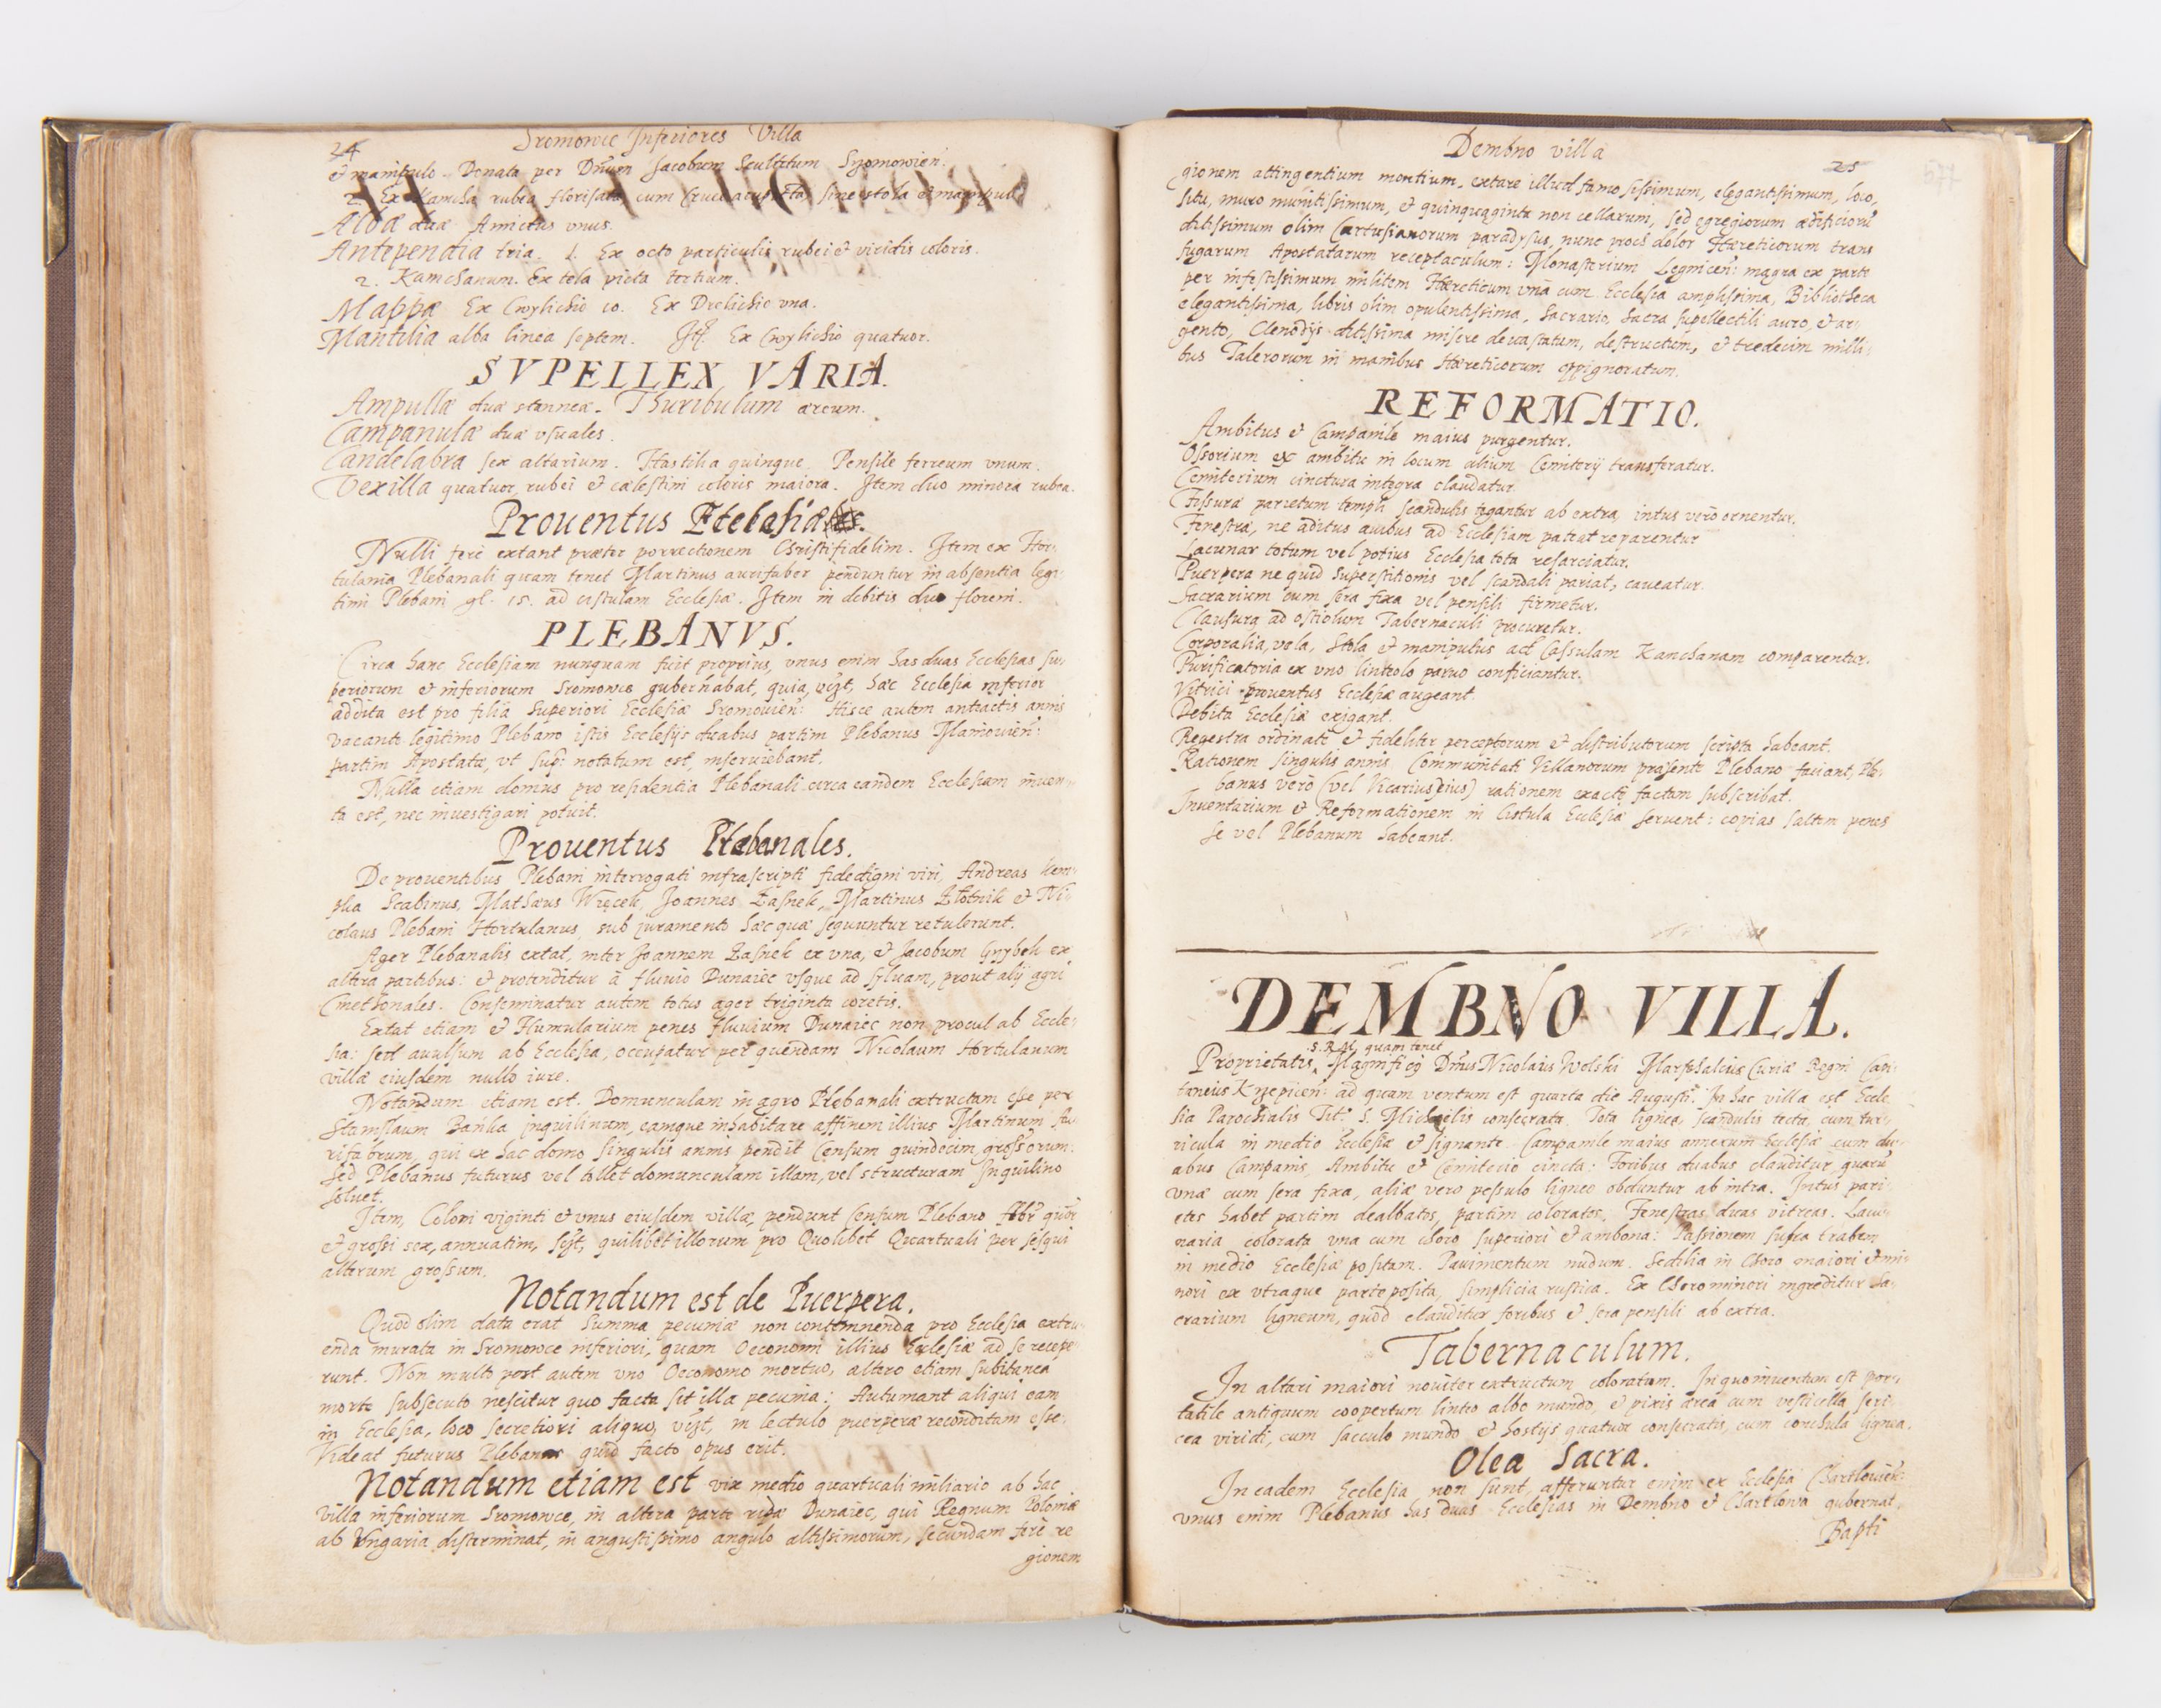 24
Sromowce Inferiores Villa
et manipulo. Donata per Dnum Jacobum Scultetum Sromowien.
2. Ex Kamcha rubea florisata cum Cruce sine stola et manipulo
Alba duæ Amictus vnus.
Antipendia tria. 1. Ex octo particulis rubei et viridis coloris.
2. Kamchanum. Ex tela picta tertium.
Mappæ Ex Cwylichio 10. Ex Drelichio vna.
Mantilia alba linea septem. Ex Cwylichio quatuor.
SVPELLEX VARIA.
Ampullæ duæ stanneæ. Thuribulum æreum.
Campanulæ duæ vsuales.
Candelabra sex altarium. Hastilia quinque. Pensile ferreum vnum.
Vexilla quatuor rubei et cælestini coloris maiora. Item duo minora rubea.
Prouentus Ecclesiæ
Nulli fere extant præter porrectionem Christifidelim. Item ex Hor-
tulania Plebanali quam tenet Martinus aurifaber penduntur in absentia legi-
timi Plebani gl. 15. ad cistulam Ecclesiæ. Item in debitis duo floreni.
PLEBANVS.
Circa hanc Ecclesiam nunquam fuit proprius, vnus enim has duas Ecclesias su-
periorum et inferiorum Sromowce gubernabat, quia, vizt, hæc Ecclesia inferior
addita est pro filia Superiori Ecclesiæ Sromowien: Hisce autem antractis annis
vacante legitimo Plebano istis Ecclesijs duabus partim Plebanus Maniowien:
partim Apostatæ, vt sup: notatum est, inseruiebant.
Nulla etiam domus pro residentia Plebanali circa eandem Ecclesiam inuen-
ta est, nec inuestigari potuit.
Prouentus Plebanales.
De prouentibus Plebani interrogati infrascripti fidedigni viri, Andreas Kem-
pka Scabinus, Mathæus Więcek, Joannes Zasnek, Martinus Złotnik et Ni-
colaus Plebani Hortulanus, sub iuramento hæc quæ sequuntur retulerunt.
Ager Plebanalis extat, inter Joannem Zasnek ex vna, et Jacobum Grzybek ex
altera partibus: et protenditur à fluuio Dunaiec vsque ad syluam, prout alij agri
Cmethonales. Conseminatur autem totus ager triginta coretis.
Extat etiam et Humularium penes fluuium Dunaiec non procul ab Eccle-
sia: sed auulsum ab Ecclesia, occupatur per quendam Nicolaum Hortulanum
villæ eiusdem nullo iure.
Notandum etiam est. Domunculam in agro Plebanali extructam esse per
Stanislaum Banka inquilinum, eamque inhabitare affinem illius Martinum Au-
rifabrum, qui ex hac domo singulis annis pendit Censum quindecim grossorum.
Sed Plebanus futurus vel tollet domunculam illam, vel structuram Inquilino
soluet.
Item, Coloni viginti et vnus eiusdem villæ, pendunt Censum Plebano
et grossi sex, annuatim, quilibet illorum pro Quolibet Quartuali per sesqui
alterum grossum.
Notandum est de Puerpera.
Quod olim data erat Summa pecuniæ non contemnenda pro Ecclesia extru-
enda murata in Sromowce inferiori, quam Oeconomi illius Ecclesiæ ad se recepe-
runt. Non multo post autem vno Oeconomo mortuo, altero etiam subitanea
morte subsecuto nescitur quo facta sit illa pecunia: Autumant aliqui eam
in Ecclesia, loco secretiori aliquo, vizt, in lectulo puerperæ reconditam esse.
Videat futurus Plebanus quid facto opus erit.
Notandum etiam est vix medio quartuali miliario ab hac
villa inferiorum Sromowce, in altera parte ripæ Dunaiec, qui Regnum Poloniæ
ab Vngaria disterminat, in angustissimo angulo altissimorum, secundam ferè re
gionem
Dembno villa
25
577
gionem attingentium montium, extare illud famosissimum, elegantissimum, loco,
situ, muro munitissimum, et quinquaginta non cellarum, sed egregiorum ædificiorū
ditissimum olim Cartusianorum paradysus, nunc proch dolor Hæreticorum trans
fugarum Apostatarum receptaculum: Monasterium Legnicen: magna ex parte
per infestissimum militem Hæreticum vnà cum Ecclesia amplissima, Bibliotheca
elegantissima, libris olim opulentissima, Sacrario, Sacra supellectili auro, et ar-
gento, Clenodijs ditissima misere deuastatum, destructum, et tredecim milli-
bus Talerorum in manibus Hæreticorum oppignoratum.
REFORMATIO.
Ambitus et Campanile maius purgentur.
Ossorium ex ambitu in locum alium Cemiterij transferatur.
Cemiterium cinctura integra claudatur.
Fissuræ parietum templi scandulis tegantur ab extra, intus verò ornentur.
Fenestræ, ne aditus auibus ad Ecclesiam pateat reparentur
Lacunar totum vel potius Ecclesia tota resarciatur.
Puerpera ne quid superstitionis vel scandali pariat, caueatur.
Sacrarium cum sera fixa vel pensili firmetur.
Clausura ad ostiolum Tabernaculi procuretur.
Corporalia, vela, Stola et manipulus ad Casulam Kanchanam comparentur.
Purificatoria ex vno linteolo paruo conficiantur.
Vitrici prouentus Ecclesiæ augeant
Debita Ecclesiæ exigant.
Regestra ordinate et fideliter perceptorum et distributorum scripta habeant.
Rationem singulis annis Communitati Villanorum præsente Plebano faciant, Ple-
banus verò (vel Vicarius eius) rationem exacte factam subscribat.
Inuentarium et Reformationem in Cistula Ecclesiæ seruent: copias saltem penes
se vel Plebanum habeant.
DEMBNO VILLA.
S.R.M. quam tenet
Proprietatis, Magnificq Dnus Nicolaus Wolski Marschalcus Curiæ Regni Capi-
taneus Krzepicen: ad quam ventum est quarta die Augusti. In hac villa est Eccle
sia Parochialis Tit. S. Michaelis consecrata. Tota lignea, scandulis tecta, cum tur-
ricula in medio Ecclesiæ et signante. Campanile maius annexum Ecclesiæ cum du-
abus Campanis, Ambitu et Cemiterio cincta: Foribus duabus clauditur, quarū
vnæ cum sera fixa, aliæ vero pessulo ligneo obduntur ab intra. Intus pari-
etes habet partim dealbatos, partim coloratos. Fenestras duas vitreas. Lacu-
naria colorata vna cum choro superiori et ambona: Passionem supra trabem
in medio Ecclesiæ positam. Pauimentum nudum. Sedilia in Choro maiori et mi-
nori ex vtraque parte posita, simplicia rustica. Ex Choro minori ingreditur Sa-
crarium ligneum, quod clauditur foribus et sera pensili ab extra.
Tabernaculum.
In altari maiori nouiter extructum coloratum. In quo inuentum est por-
tatile antiquum coopertum linteo albo mundo, et pixis ærea cum vesticella seri-
cea viridi, cum sacculo mundo et hostijs quatuor consecratis, cum conchula lignea.
Olea Sacra.
In eadem Ecclesia non sunt, afferuntur enim ex Ecclesia Chartlowien:
vnus enim Plebanus has duas Ecclesias in Dembno et Chartlowa gubernat.
Bapti